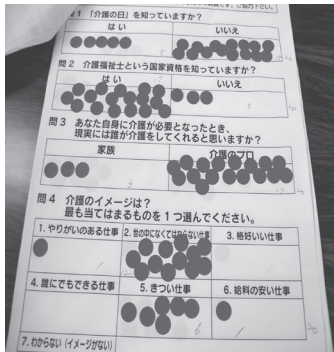 問1 「介護の日」を知っていますか？
はい
いいえ
問2 介護福祉士という国家資格を知っていますか？
はい
いいえ
問3 あなた自身に介護が必要となったとき、
現実には誰が介護をしてくれると思いますか？
家族
介護のプロ
問4 介護のイメージは？
最も当てはまるものを1つ選んでください。
1. やりがいのある仕事
2. 世の中になくてはならない仕事
3. 格好いい仕事
4. 誰にでもできる仕事
5. きつい仕事
6. 給料の安い仕事
7. わからない（イメージがない）